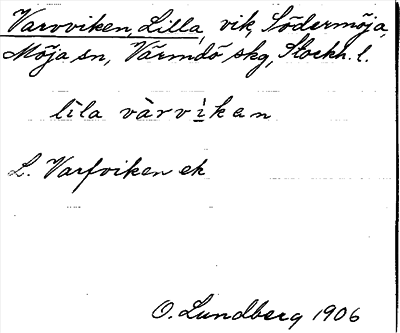 Varvviken, Lilla, vik, Södermöja,
Möja sn, Värmdö skg, Stockh. l.
lìla vàrvi̱kan
L. Varfviken ek
O. Lundberg 1906